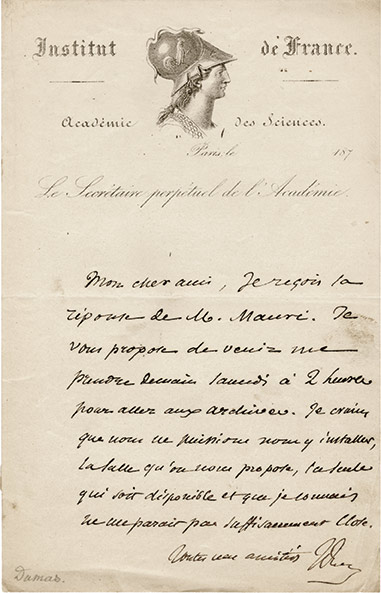 Institut de France.
Académie des Sciences.
Paris, le 187
Le Secrétaire perpétuel de l'Académie.
Mon cher ami, Je reçois la
réponse de M. Mauri. Je
vous propose de venir me
prendre demain Samedi à 2 heures
pour aller aux archives. Je crains
que nous ne puissions nous y installer,
la Salle qu'on nous propose, la seule
qui soit disponible et que je connais
ne me parait pas suffisamment close.
Toutes mes amitiés
Dumas.